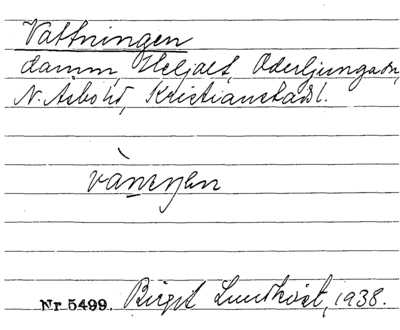 Vattningen
damm, Heljalt, Oderljungasn,
N. Åsbo hd, Kristianstads l.
Nr 5499. Birgit Lundkvist, 1938.